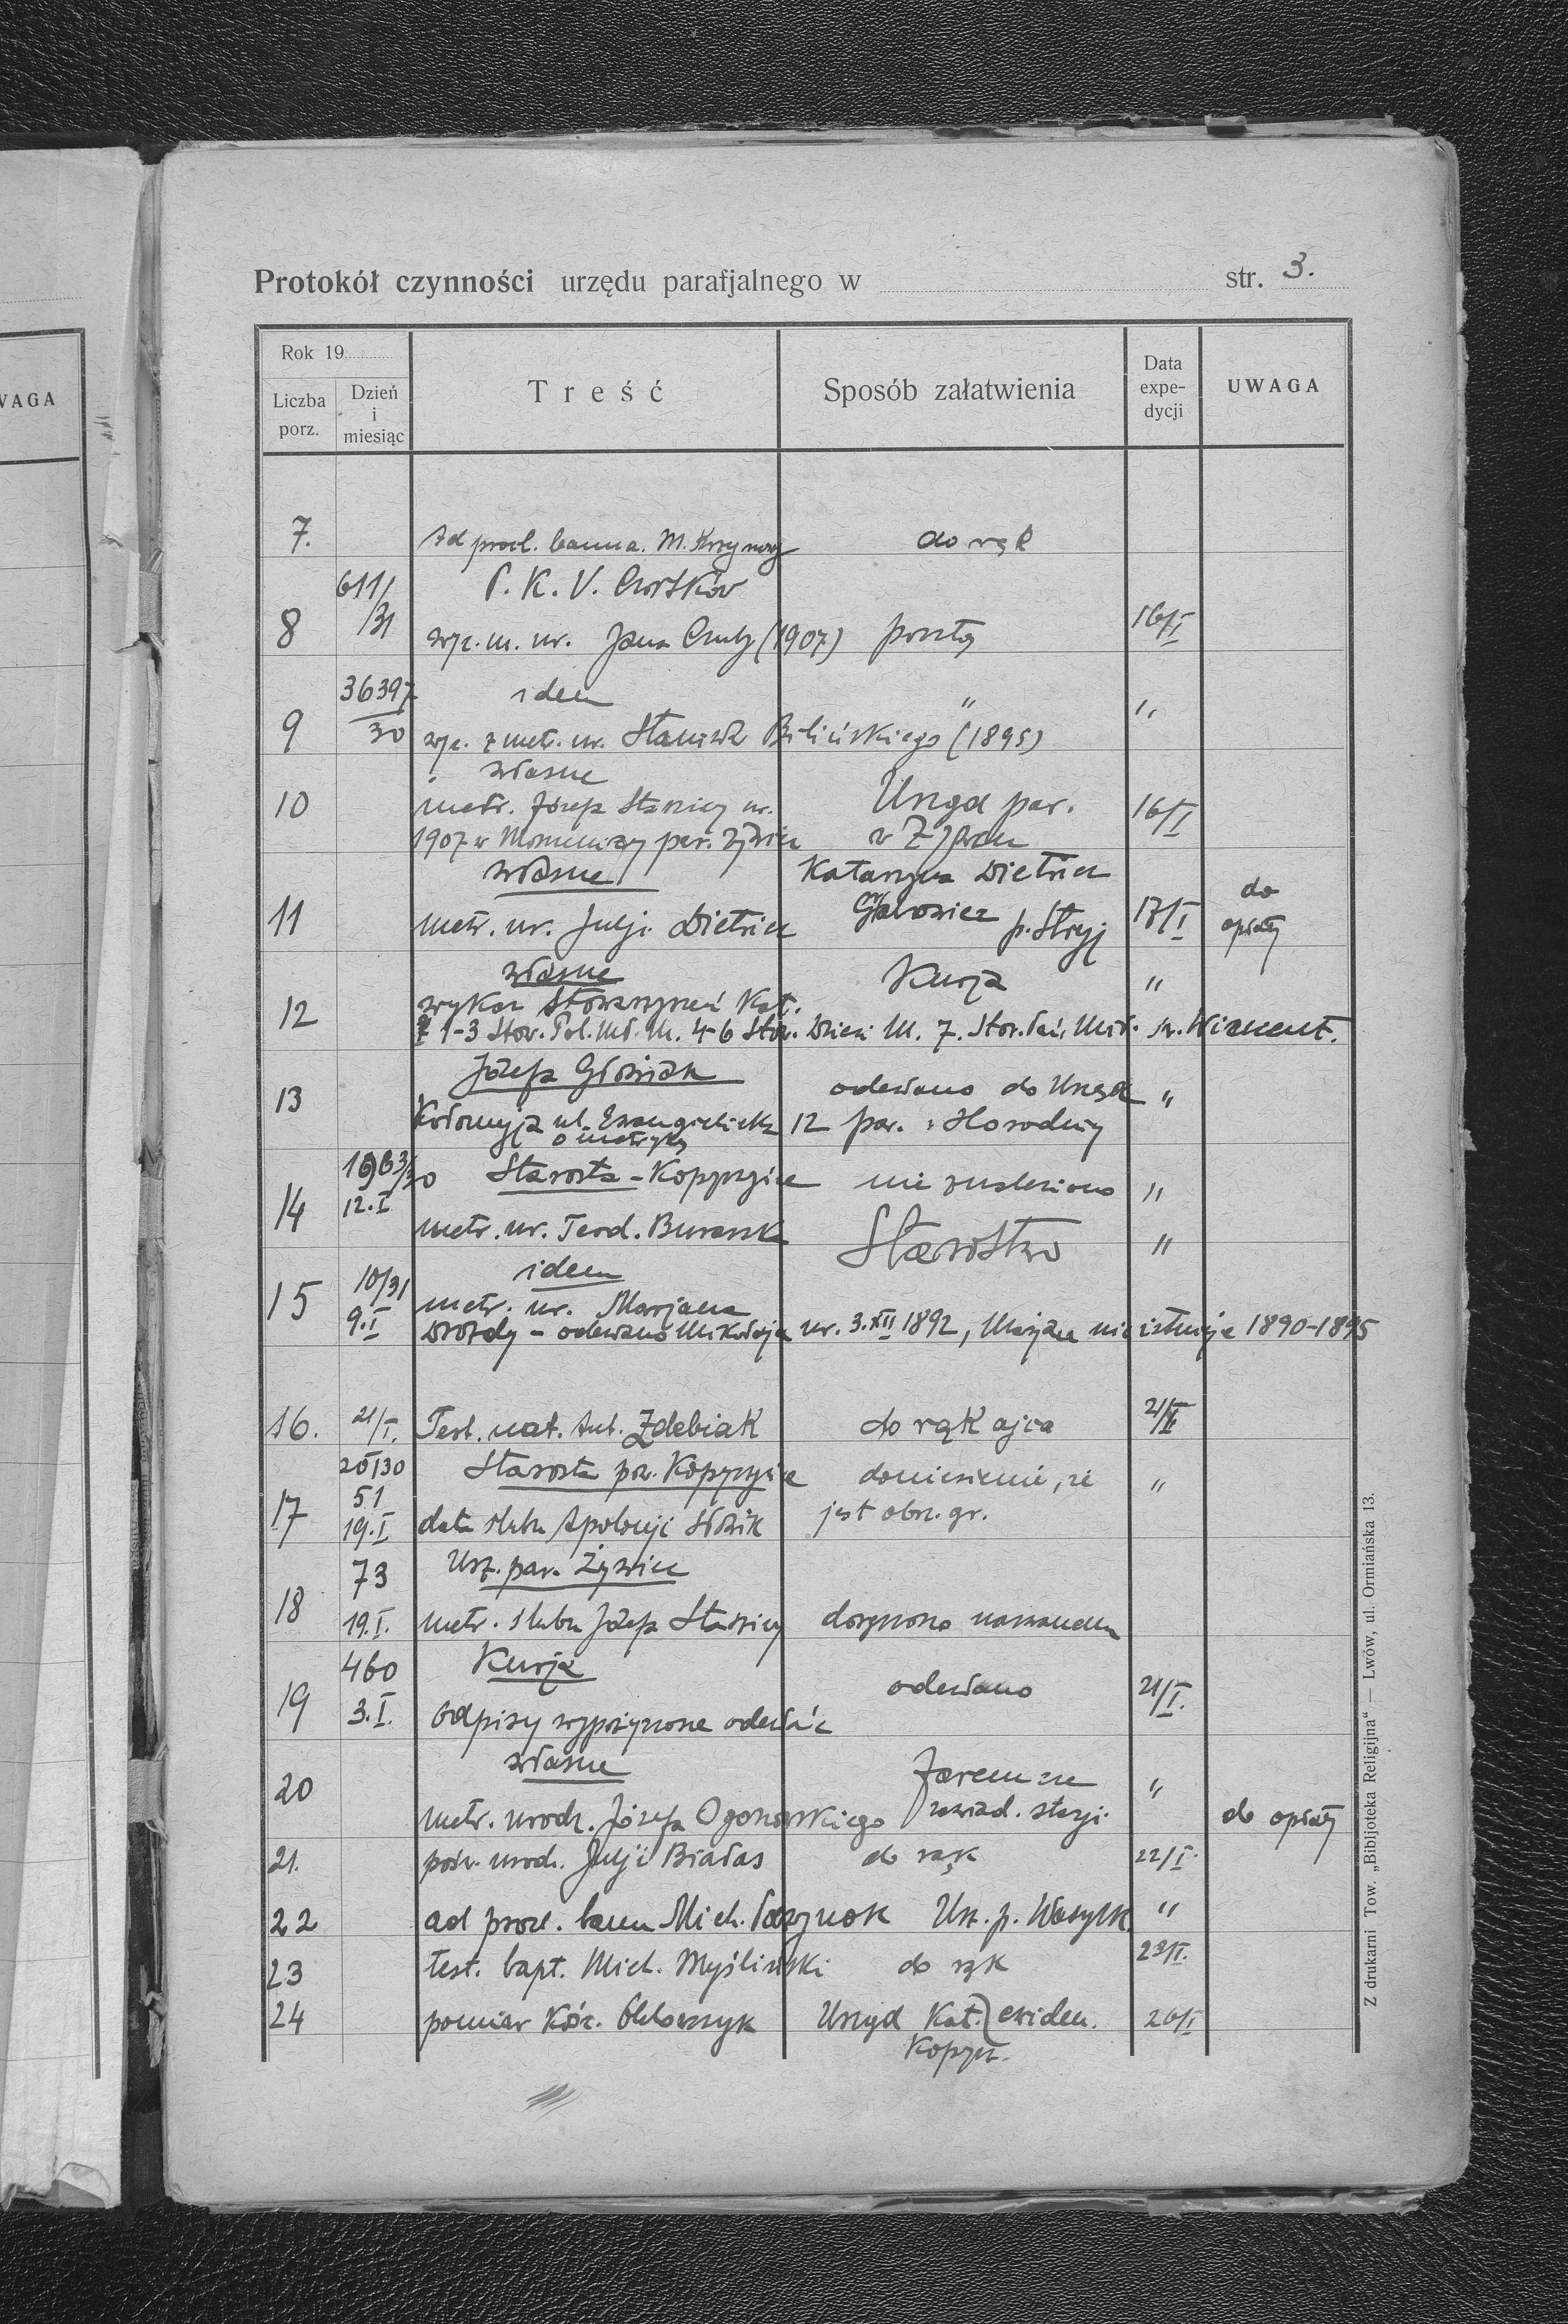 WAGA
Protokół czynności urzędu parafjalnego w str. 3.
Rok 19
Liczba porz.
Dzień i miesiąc
Treść
Sposób załatwienia
Data expedycji
UWAGA
7. Ad procl. banna. M. do rąk
611/31 P. K. U. Czortków
8 wyc. m. ur. Jana (1907) pocztą 16/I
36397/30 idem " "
9 wyc. z metr. ur. Stanisła Bilińskiego (1895)
własne
10 metr. Józefa Stasicy ur. Urząd par. 16/I
1907 w par. Żywiec w Żywcu
własne Katarzyna Dietrich do
11 metr. ur. Julji Dietrich p. Stryj 17/I opłaty
własne Kurja "
12 wykaz Stowarzyszeń Kat.
1-3 Stow. Pol. Mł. M. 4-6 Stow. Dzieci M. 7. Stow. Pań Mił. św. Wincent.
Józefa
13 odesłano do Urzędu "
Kołomyja ul. Ewangielicka 12 par. Horodnicy
o metrykę
1963/30 Starosta - Kopyczyńce nie znaleziono "
14 12.I metr. ur. Teod.
Starostwo "
10/31 idem
15 9.I metr. ur. Marjana
Drozdy - odesłano Mikołaja ur. 3.XII 1892, Marjan nie istnieje 1890-1895
16. 21/I. Test. nat. Ant. Zdebiak do rąk ojca 21/I
20130 Starosta pow. Kopyczyńce doniesienie, że "
17 51
19.I data ślubu Apolonji jest obrz. gr.
73 Urz. par. Żywiec
18 19.I. metr. ślubu Józefa Stasicy doręczono
460 Kurja
19 3.I. Odpisy wypożyczone odesłać odesłano 21/I.
własne
20 Jaremcze "
metr. urodz. Józefa Ogonowskiego zawiad. stacji. do opłaty
21. pośw. urodz. Julji Białas do rąk 22/I.
22 ad procl. bann Mich. Urz. p. "
23 test. bapt. Mich. Myśliński do rąk 23/I.
24 pomiar Urząd Kat. ewiden. 26/I
Kopycz.
Z drukarni Tow. „Bibljoteka Religijna“ — Lwów, ul. Ormiańska 13.